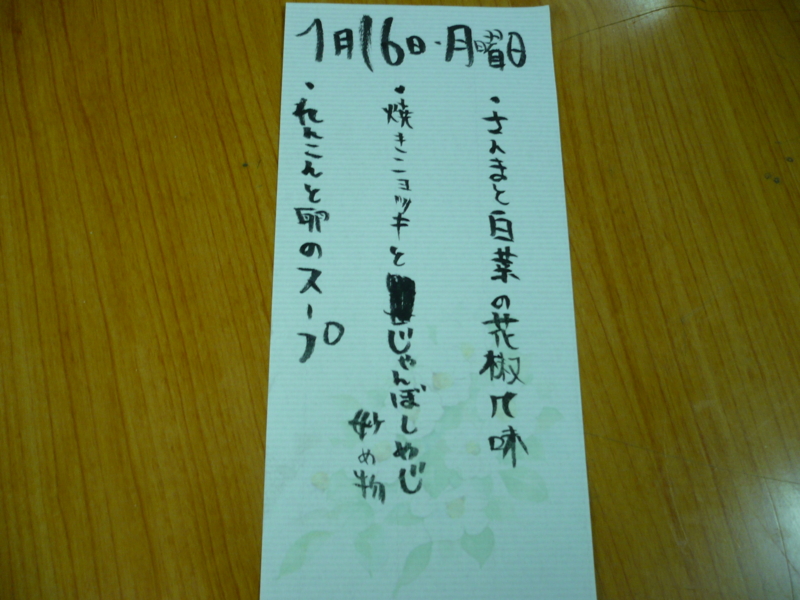 1月16日・月曜日
・さんまと白菜の花椒風味
・焼きニョッキとじゃんぼしめじ
炒め物
・れんこんと卵のスープ